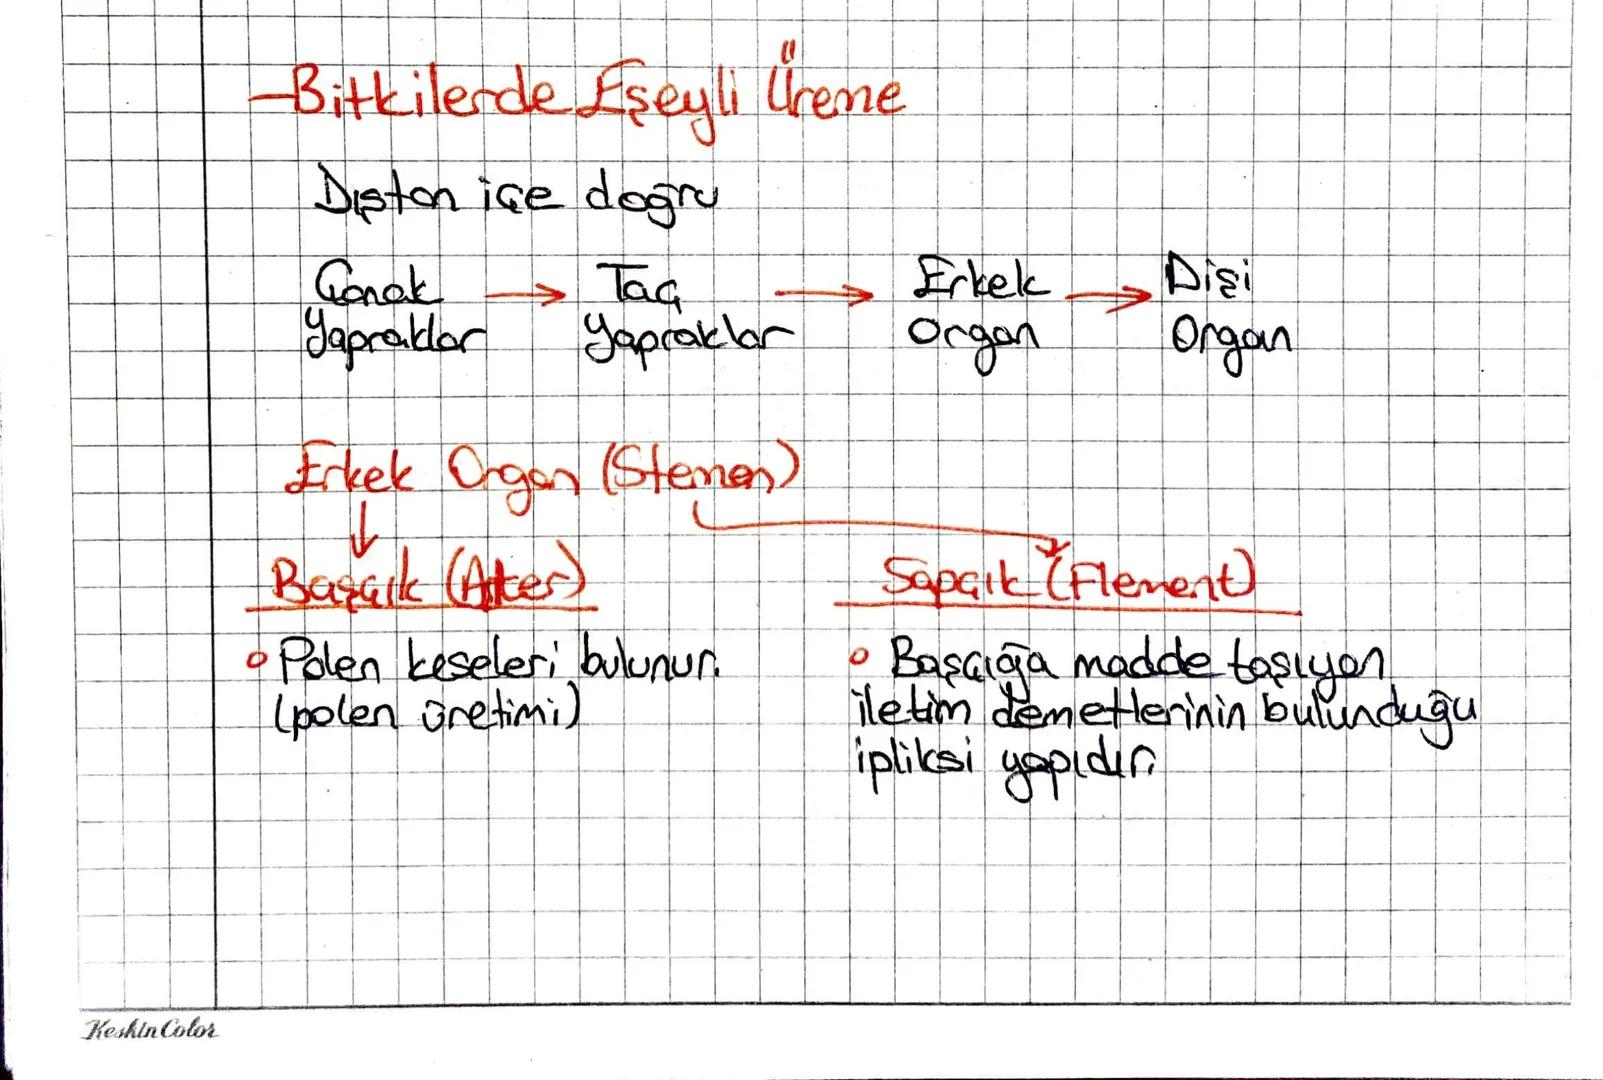 -Bitkilerde Eşeyli Üreme
Dıştan içe doğru
Çanak → Taç → Erkek → Dişi
Yapraklar Yapraklar Organ Organ
Erkek Organ (Stemen)
Başçık (Anter) Sapçık (Flement)
Polen keseleri bulunur. Başçığa madde taşıyan
(polen üretimi) iletim demetlerinin bulunduğu
ipliksi yapıdır.
KeskinColor